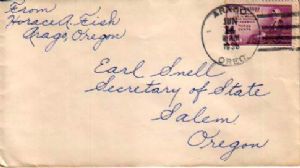 From
Horace A. Fish
Arago, Oregon
ARAGO
JUN
14
1936
OREG.
Earl Snell
Secretary of State
Salem
Oregon